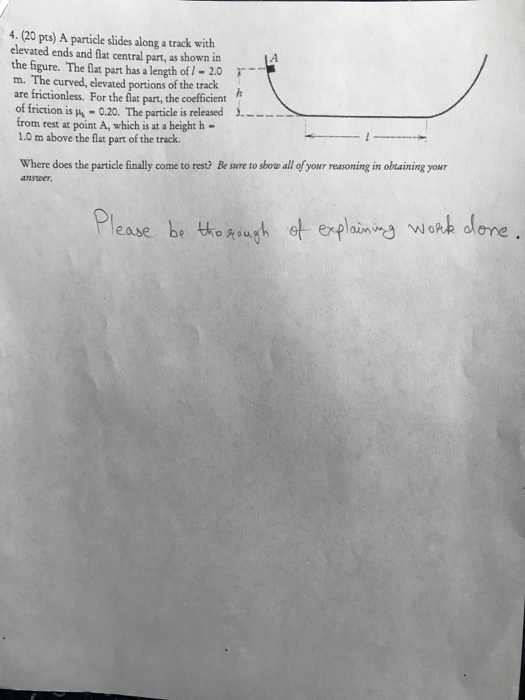 4. (20 pts) A particle slides along a track with
elevated ends and flat central part, as shown in
the figure. The flat part has a length of l = 2.0
m. The curved, elevated portions of the track
are frictionless. For the flat part, the coefficient
of friction is μk = 0.20. The particle is released
from rest at point A, which is at a height h =
1.0 m above the flat part of the track.
A
h
l
Where does the particle finally come to rest? Be sure to show all of your reasoning in obtaining your
answer.
Please be thorough of explaining work done.